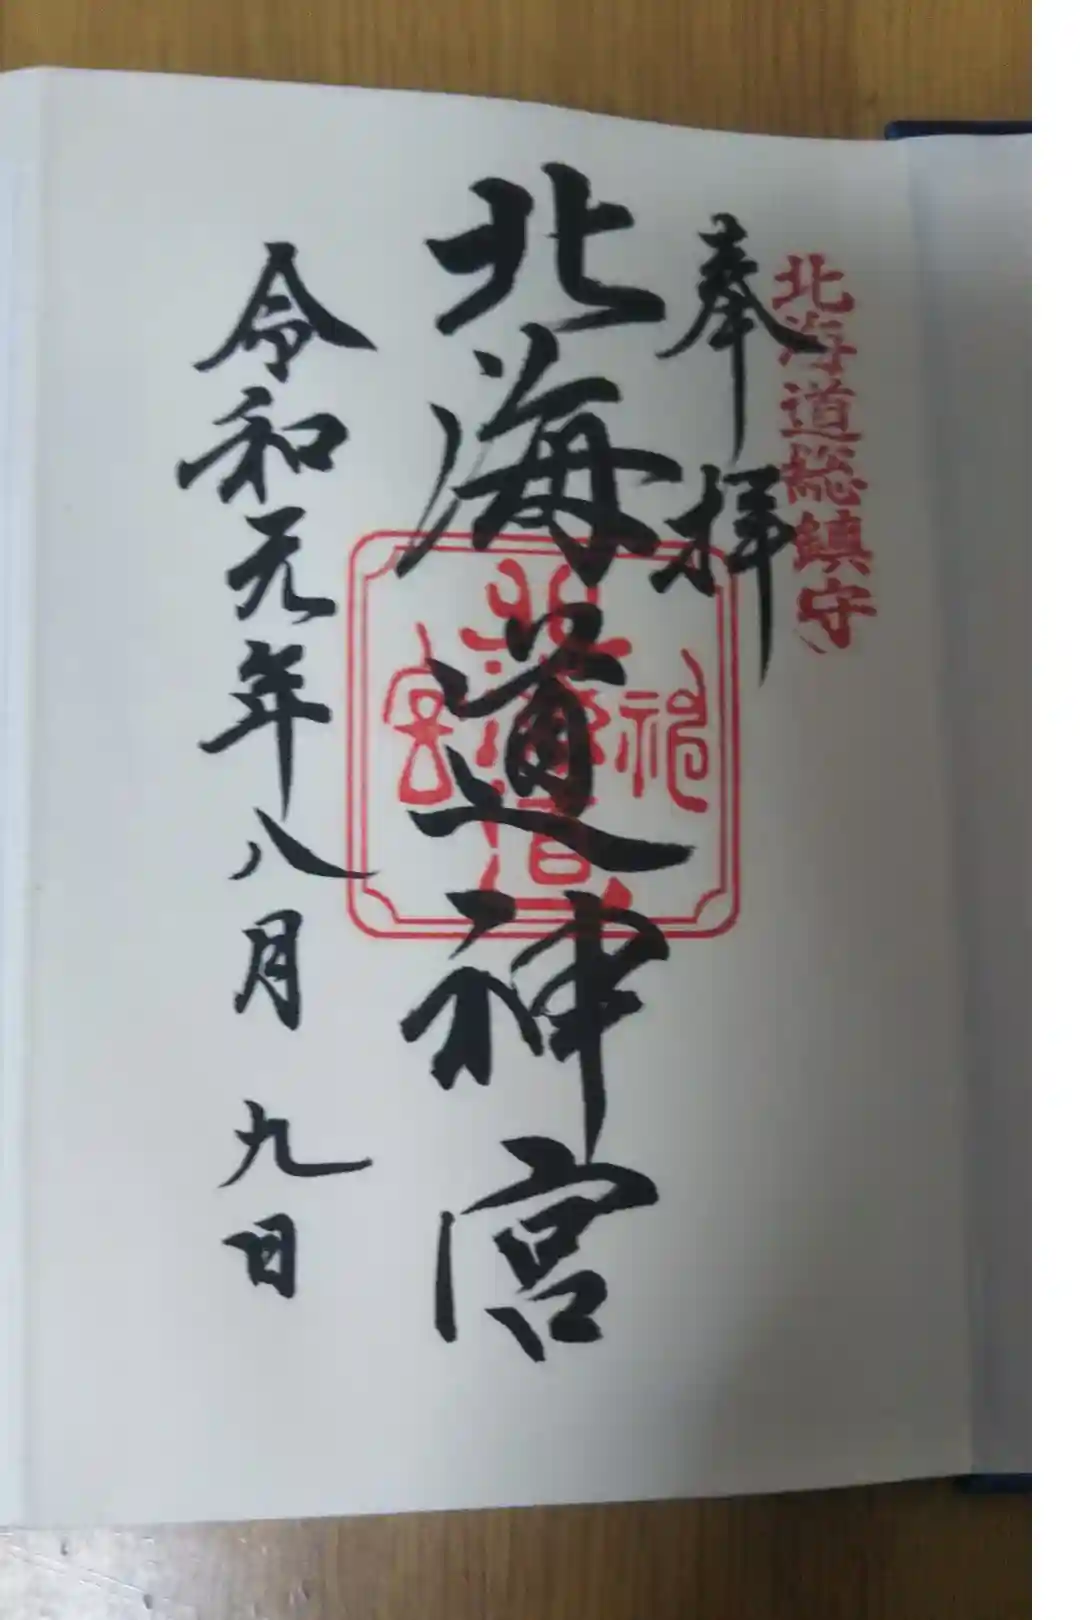 北海道総鎮守
奉拝
北海道神宮
令和元年八月九日